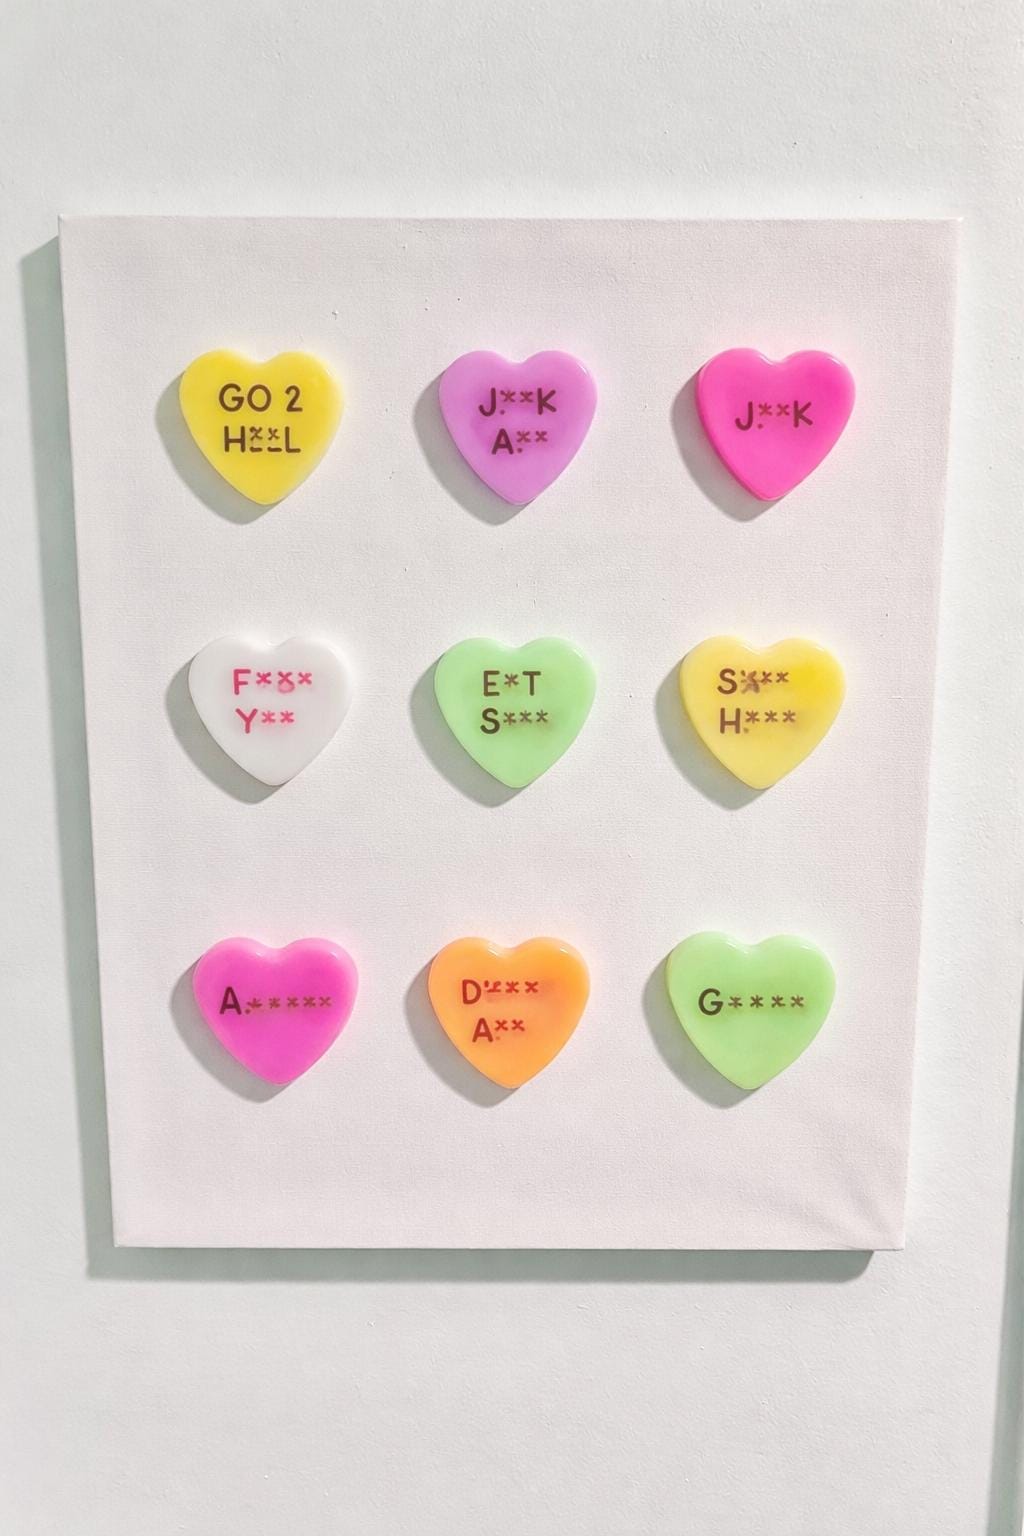 GO 2
H**L
J**K
A**
J**K
F***
Y**
E*T
S***
S***
H***
A*****
D****
A**
G****